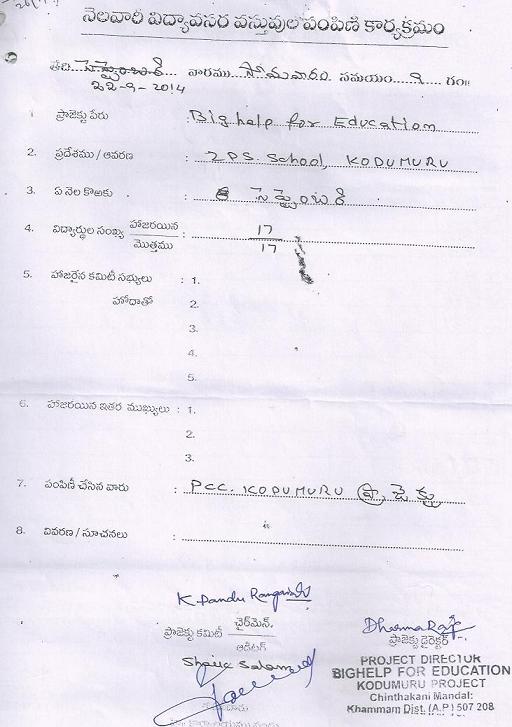 నెలవారి విద్యావసర వస్తువుల పంపిణి కార్యక్రమం
తేది సెప్టెంబర్ వారము సోమవారం సమయం 9 గం॥
22-9-2014
1 ప్రాజెక్టు పేరు : Big help for Education
2. ప్రదేశము / ఆవరణ : ZPS. School, KODUMURU
3. ఏ నెల కొఱకు : సెప్టెంబర్
4. విద్యార్థుల సంఖ్య హాజరయిన / మొత్తము : 17 / 17
5. హాజరైన కమిటీ సభ్యులు : 1.
హోదాతో 2.
3.
4.
5.
6. హాజరయిన ఇతర ముఖ్యులు : 1.
2.
3.
7. పంపిణీ చేసిన వారు : PCC. KODUMURU ప్రాజెక్టు
8. వివరణ / సూచనలు :
K Pandu
చైర్మెన్.
ప్రాజెక్టు కమిటీ
ఆడిటర్
Shaik
DharmaRaju
ప్రాజెక్టు డైరెక్టర్
PROJECT DIRECTOR
BIGHELP FOR EDUCATION
KODUMURU PROJECT
Chinthakani Mandal:
Khammam Dist. (A.P) 507 208